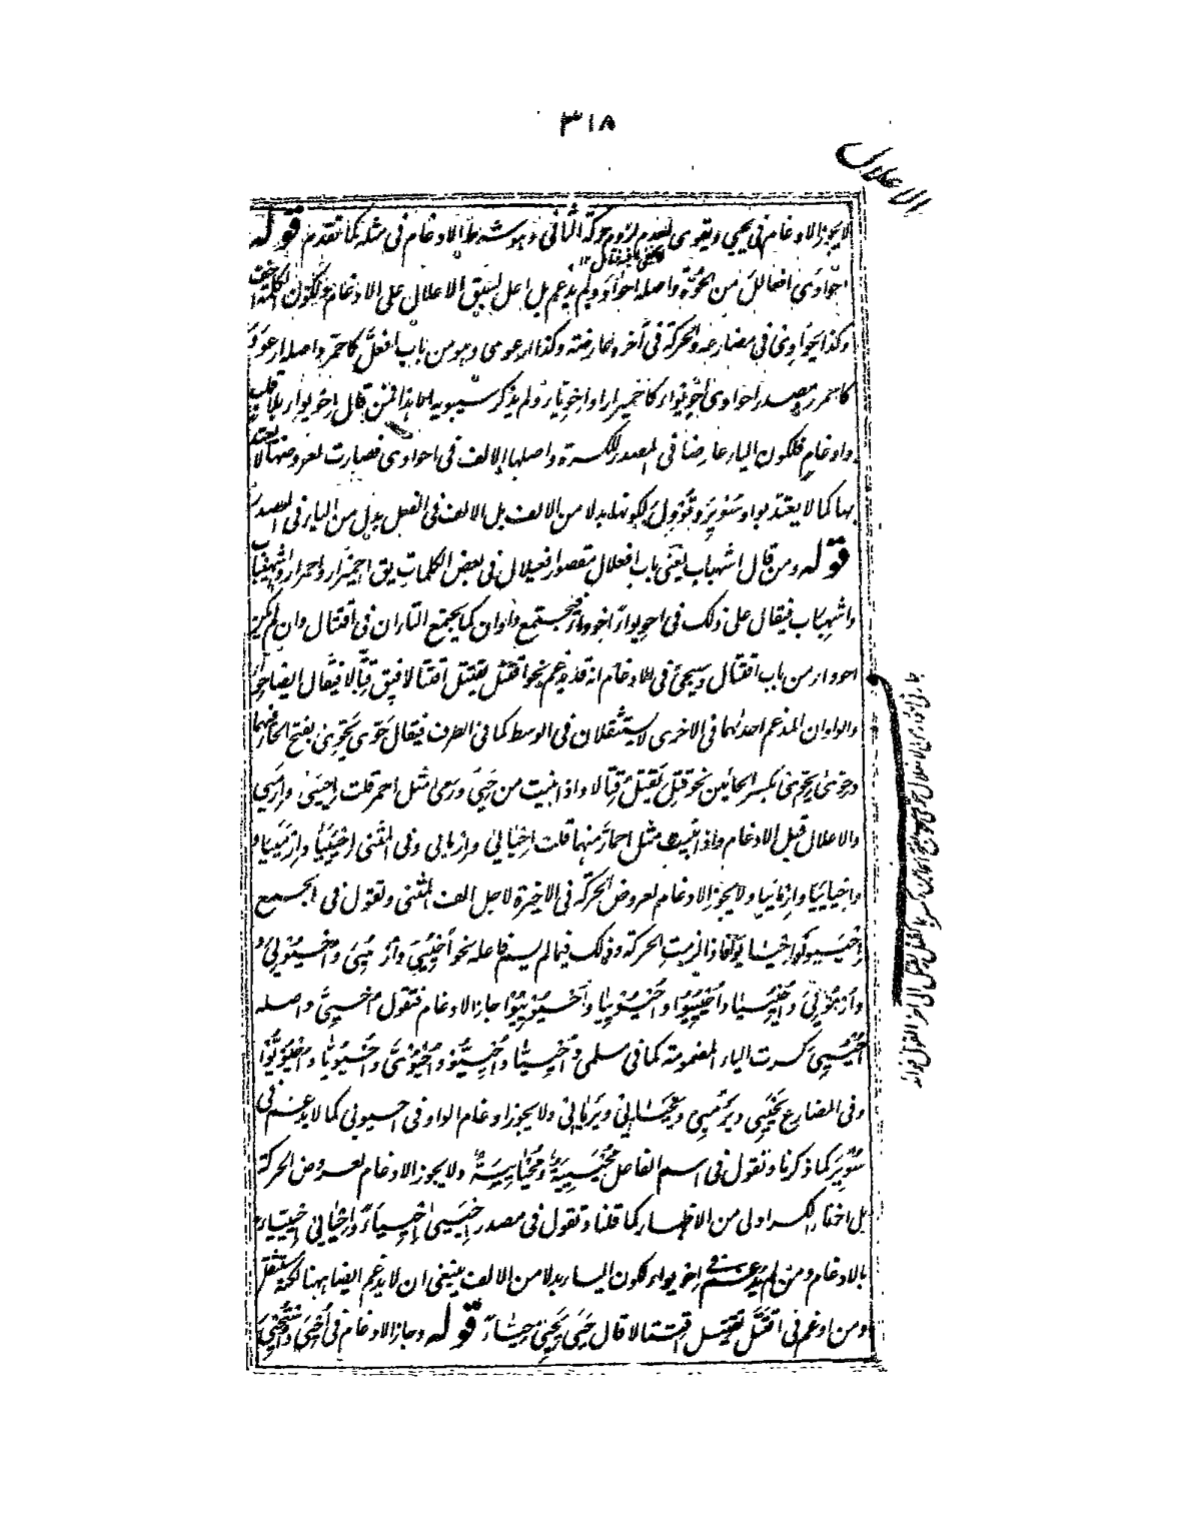 ٣١٨
الاعلال
لا يجوز الادغام فى يحيى ويقوى لعدم لزوم حركة الثانى وهو شرط الادغام فى مثله كما تقدم قوله
احواوى افعالل من الحوة واصله احواوو ولم يدغم بل اعل لسبق الاعلال على الادغام ولكون الكلمة اخف
وكذا يحواوى فى مضارعه والحركة فى آخره عارضة وكذا ارعوى وهو من باب افعل كاحمر واصله ارعوو
كاحمرر ومصدر احواوى احويواء كاحميرار واحوياء ولم يذكر سيبويه الا هذا فمن قال احويواء بلا قلب
وادغام فلكون الياء عارضا فى المصدر للكسرة واصلها الالف فى احواوى فصارت لعروضها لا يعتد
بها كما لا يعتد بواو سوير وقوول لكونها بدلا من الالف بل الالف فى الفعل بدل من الياء فى المصدر
قوله ومن قال اشهباب يعنى باب افعلال مقصور افعيلال فى بعض الكلمات يق احميرار واحمرار واشهيباب
واشهباب فيقال على ذلك فى احويواء احوواء فيجتمع واوان كما يجتمع التاءان فى اقتتال وان لم يكن
احوواء من باب اقتتال وسيجئ فى الادغام انه قد يدغم نحو اقتتل يقتتل اقتتالا فيق قتالا فيقال ايضا حواء
والواوان المدغم احدهما فى الاخرى لا يستثقلان فى الوسط كما فى الطرف فيقال حوى يحوى بفتح الحاء فيهما
وحوى يحوى بكسر الحائين نحو قتل يقتل قتالا واذا بنيت من حيى ورمى مثل احمر قلت احييى وارميى
والاعلال قبل الادغام واذا بنيت مثل احمار منها قلت احيايى وارمايى وفى المثنى احييا وارمييا و
واحياييا وارماييا ولا يجوز الادغام لعروض الحركة فى الاخيرة لاجل الف المثنى وتقول فى الجمع
احييوا واحيايوا فاذا لزمت الحركة وذلك فيما لم يسم فاعله نحو احييى وارميى واحيويى
وارمويى واحيييا واحيييوا واحيوييا واحيوييوا جاز الادغام فتقول احيى واصله
احييى كسرت الياء المضمومة كما فى مسلمى واحييا واحيوا واحيوى واحيويا واحيويوا
وفى المضارع يحييى ويرميى ويحيايى ويرمايى ولا يجوز ادغام الواو فى احيويى كما لا يدغم فى
سوير كما ذكرنا وتقول فى اسم الفاعل محييية ومحيايية ولا يجوز الادغام لعروض الحركة
بل اخفاء الكسر اولى من الاظهار كما قلنا وتقول فى مصدر احييى احيياء واحيايى احيياء
بالادغام ومن لم يدغم فى احويواء لكون الياء بدلا من الالف ينبغى ان لا يدغم ايضا هنا لكنه مستثقل
ومن ادغم فى اقتتل يقتتل اقتتالا قال حيى يحيى حياء قوله وجاز الادغام فى احيى واستحيى